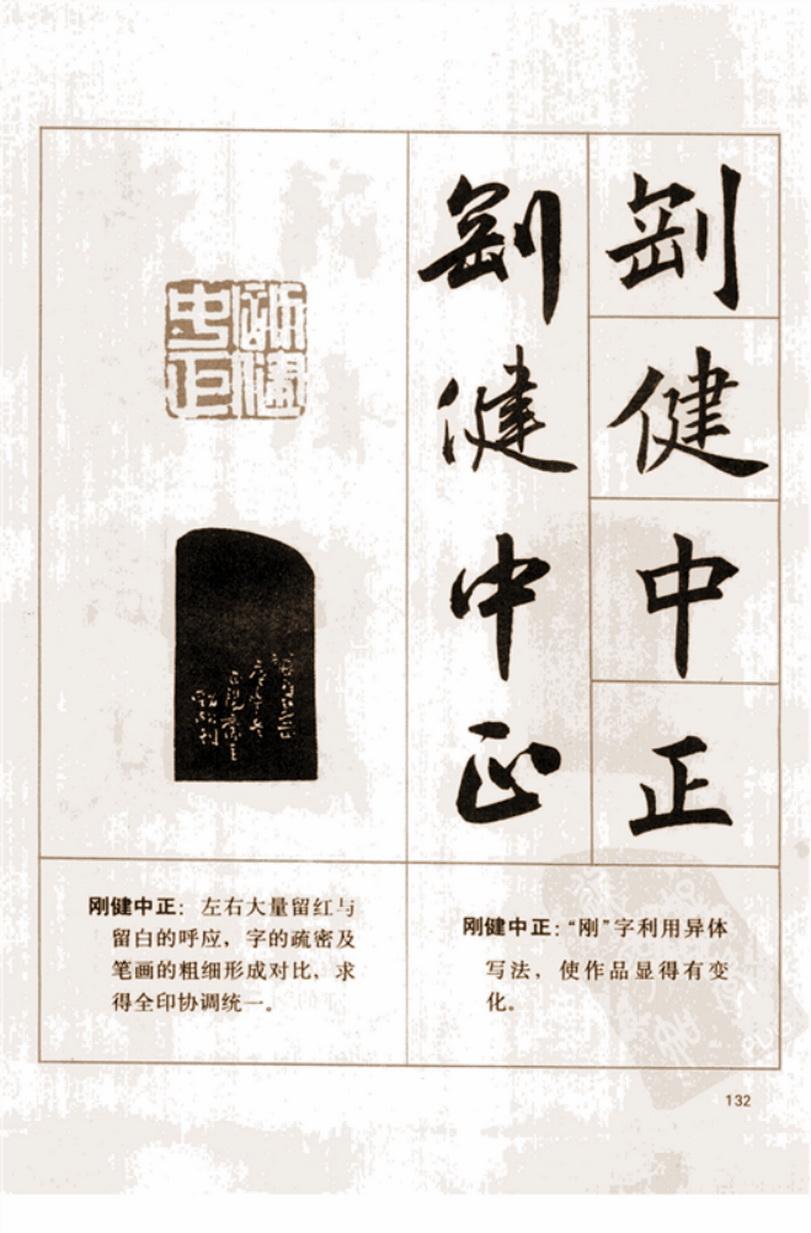 刚健中正
刚健中正
刚健中正
刚健中正：左右大量留红与
留白的呼应，字的疏密及
笔画的粗细形成对比，求
得全印协调统一。
刚健中正：“刚”字利用异体
写法，使作品显得有变
化。
132